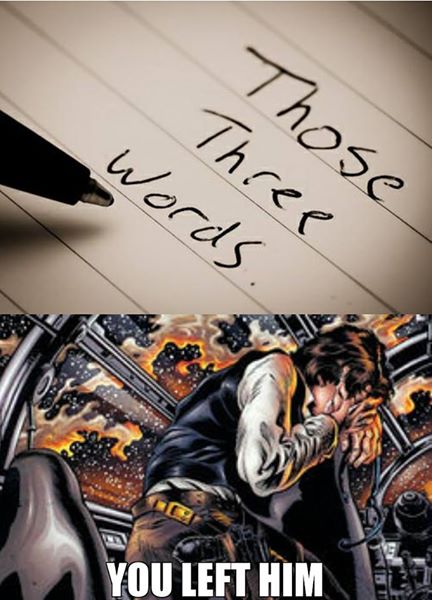 Those
Three
Words.
YOU LEFT HIM